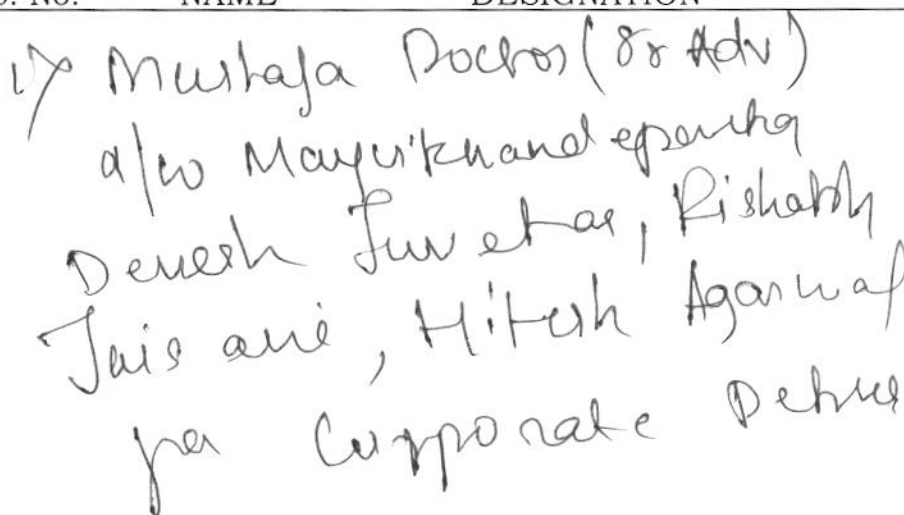 S. No. NAME DESIGNATION
1) Mustafa Doctor (Sr Adv)
a/w Mayur Khandeparkar
Devesh Juvekar, Rishabh
Jaisani, Hitesh Agarwal
for Corporate Debtor